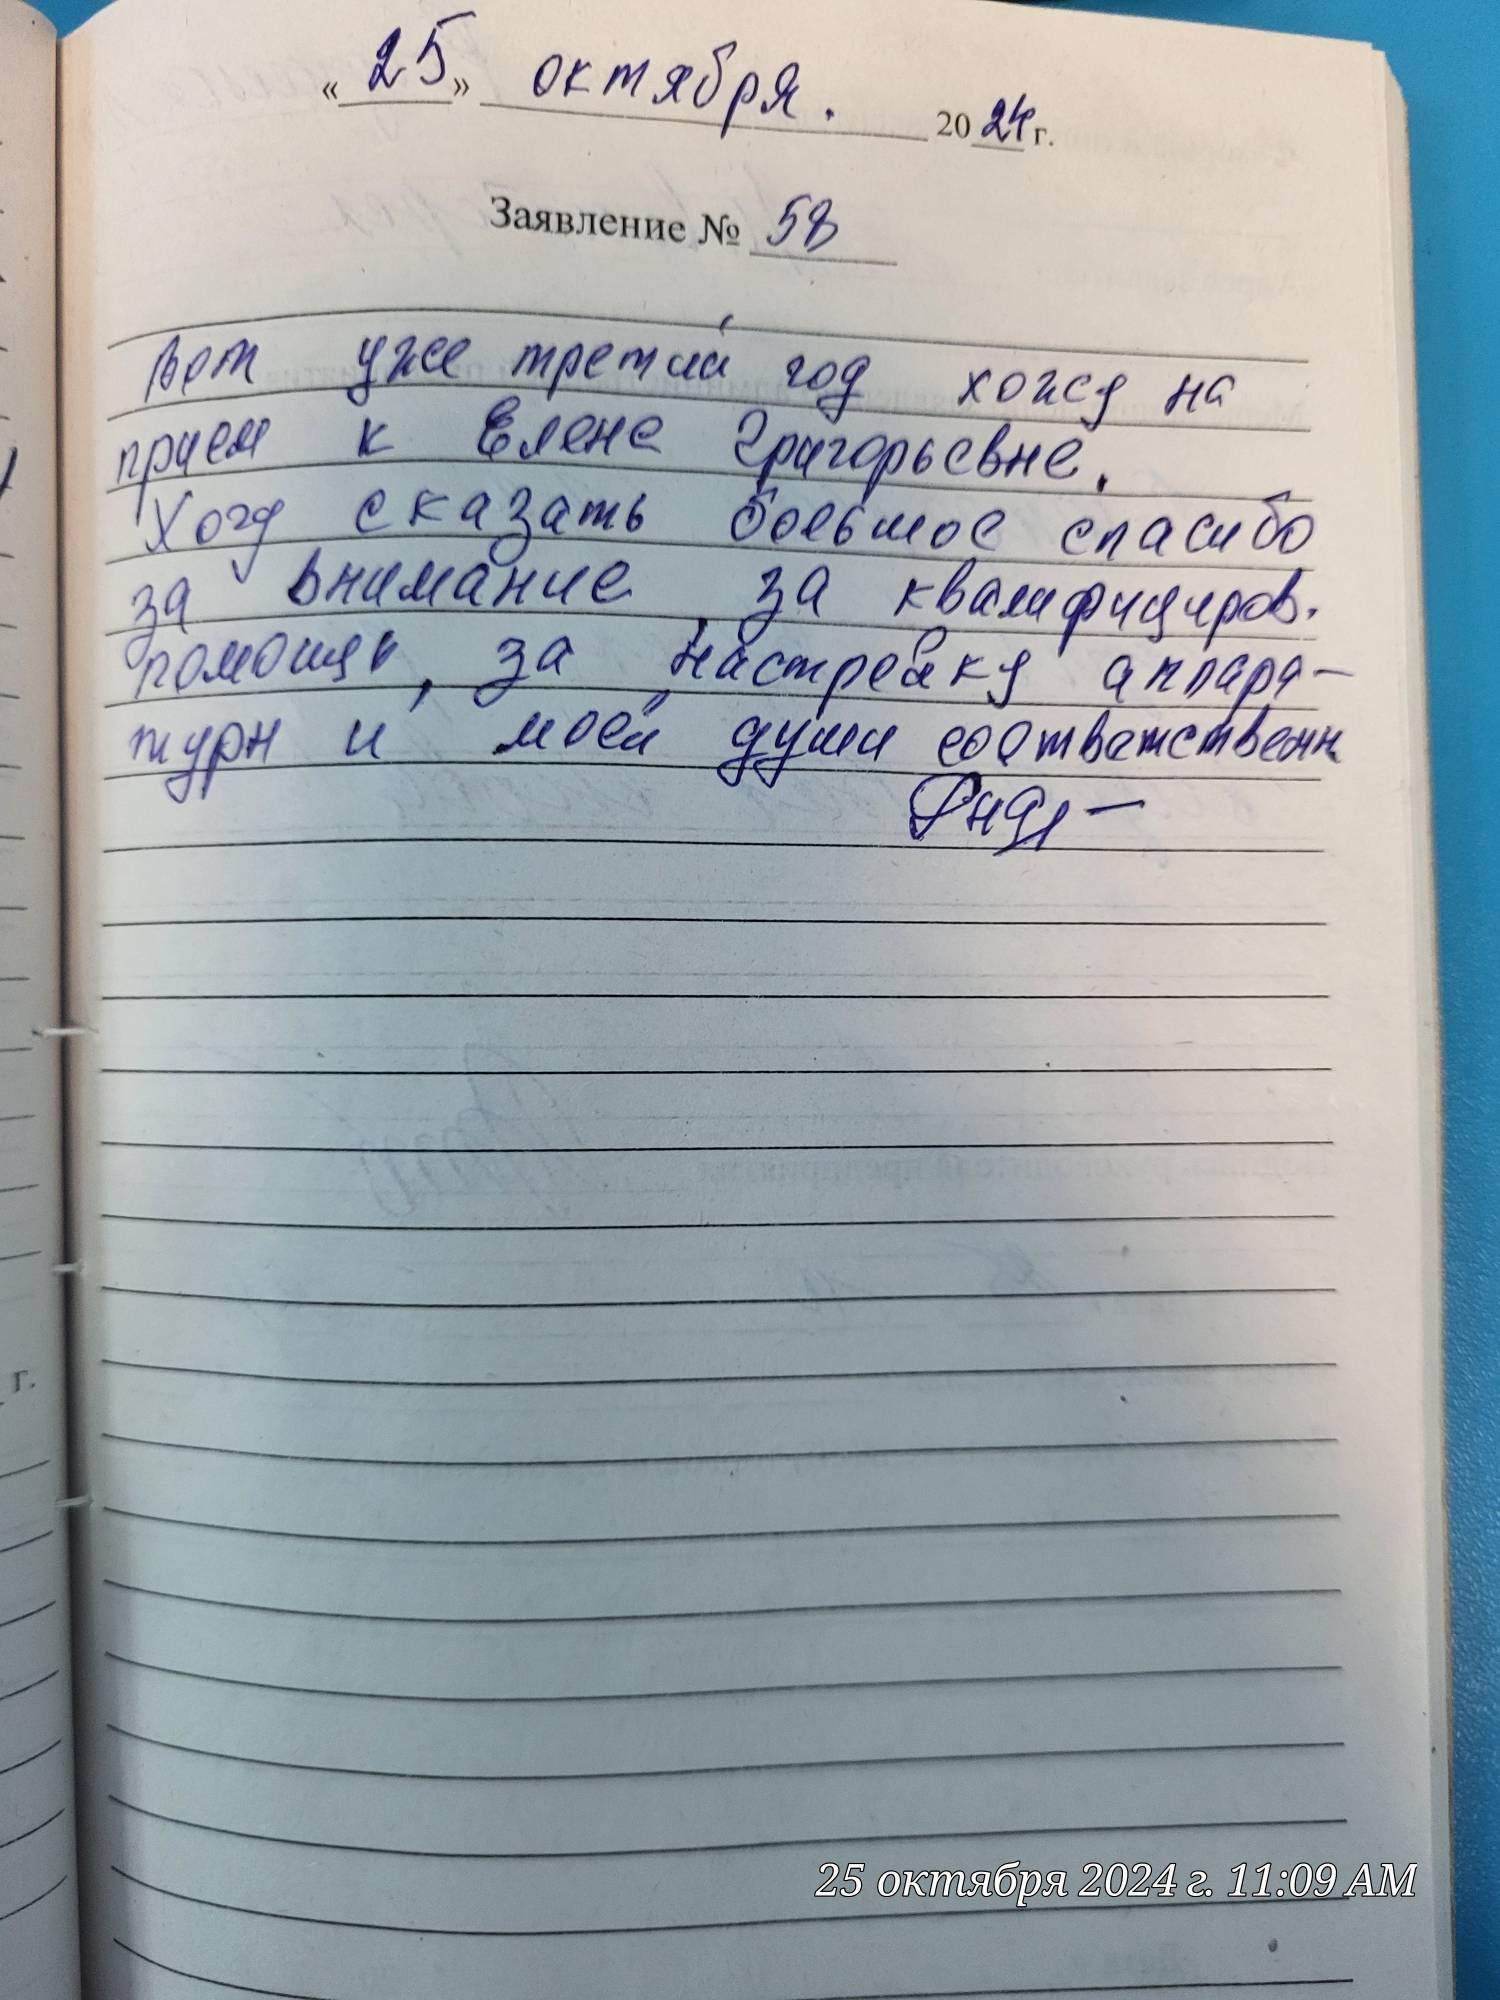 «25» октября. 2024 г.
Заявление № 58
Вот уже третий год хожу на
прием к Елене Григорьевне.
Хочу сказать большое спасибо
за внимание, за квалифициров.
помощь, за настройку аппара-
туры и моей души соответственн
25 октября 2024 г. 11:09 AM